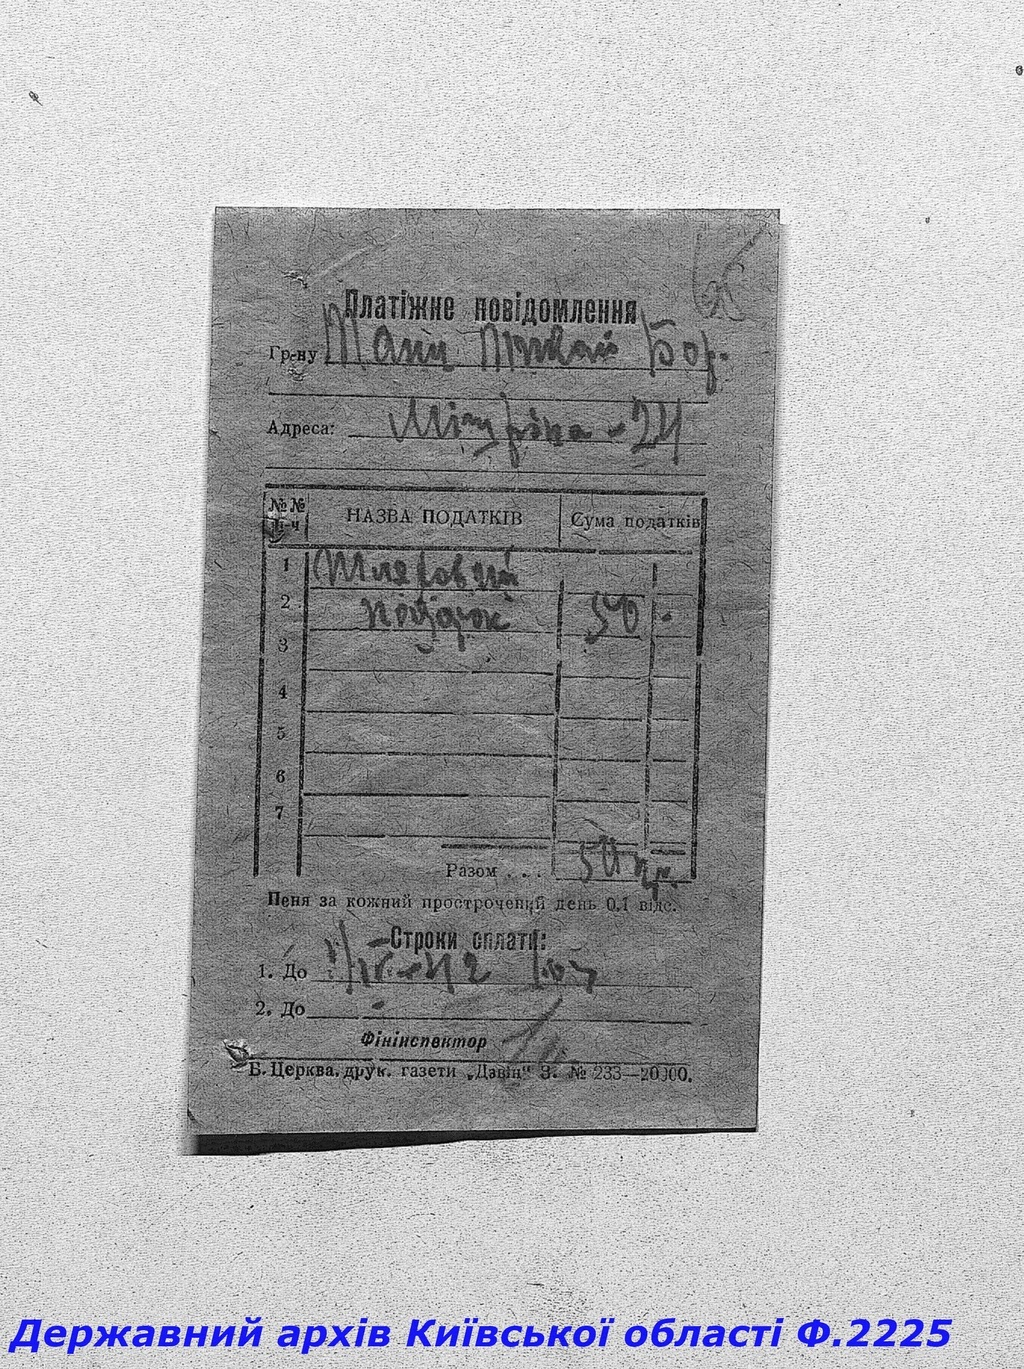 Платіжне повідомлення
Гр-ну Бор.
Адреса: Мічуріна - 24
№№ п-ч НАЗВА ПОДАТКІВ Сума податків
1
2 податок 50 -
3
4
5
6
7
Разом . . . 50 кр.
Пеня за кожний прострочений день 0.1 відс.
Строки сплати:
1. До 1/IV-42
2. До
Фінінспектор
Б. Церква, друк. газети „Дзвін" З. № 233—20000.
Державний архів Київської області Ф.2225